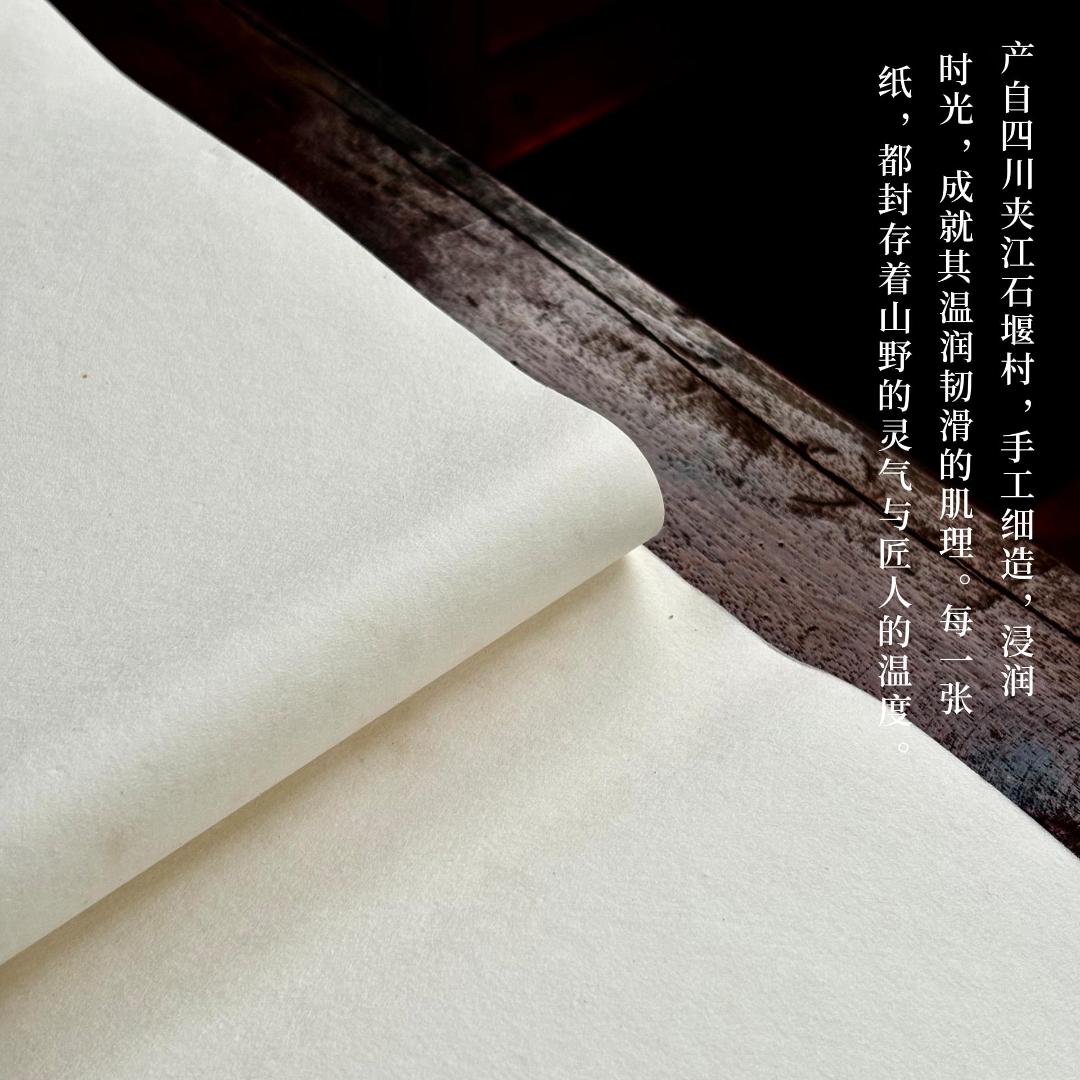 产自四川夹江石堰村，手工细造，浸润
时光，成就其温润韧滑的肌理。每一张
纸，都封存着山野的灵气与匠人的温度。